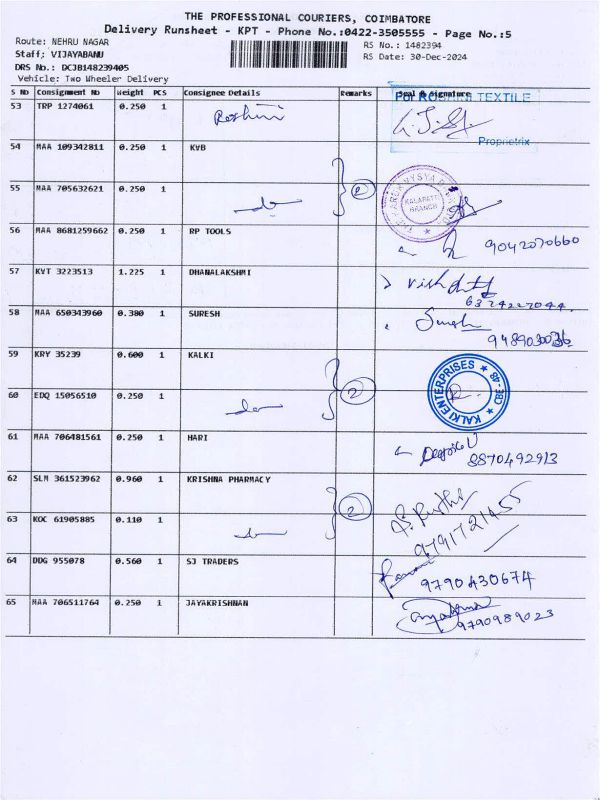 THE PROFESSIONAL COURIERS, COIMBATORE
Delivery Runsheet - KPT - Phone No.:0422-3505555 - Page No.:5
Route: NEHRU NAGAR
RS No.: 1482394
Staff: VIJAYABANU
RS Date: 30-Dec-2024
DRS No.: DCJB148239405
Vehicle: Two Wheeler Delivery
S No Consignment No Weight PCS Consignee Details Remarks Seal & Signature
53 TRP 1274061 0.250 1 Roshini For ROSHINI TEXTILE
Proprietrix
54 MAA 109342811 0.250 1 KVB
55 MAA 705632621 0.250 1 do 2 KALAPATTI BRANCH
56 MAA 8681259662 0.250 1 RP TOOLS 9042070660
57 KVT 3223513 1.225 1 DHANALAKSHMI
6374227044
58 MAA 650343960 0.380 1 SURESH Suresh
9489030036
59 KRY 35239 0.600 1 KALKI KALKI ENTERPRISES ★ CBE-48 ★
60 EDQ 15056510 0.250 1 do 2
61 MAA 706481561 0.250 1 HARI 8870492913
62 SLM 361523962 0.960 1 KRISHNA PHARMACY
63 KOC 61905885 0.110 1 do 2 9791721455
64 DDG 955078 0.560 1 SJ TRADERS 9790430674
65 MAA 706511764 0.250 1 JAYAKRISHNAN 9790989023